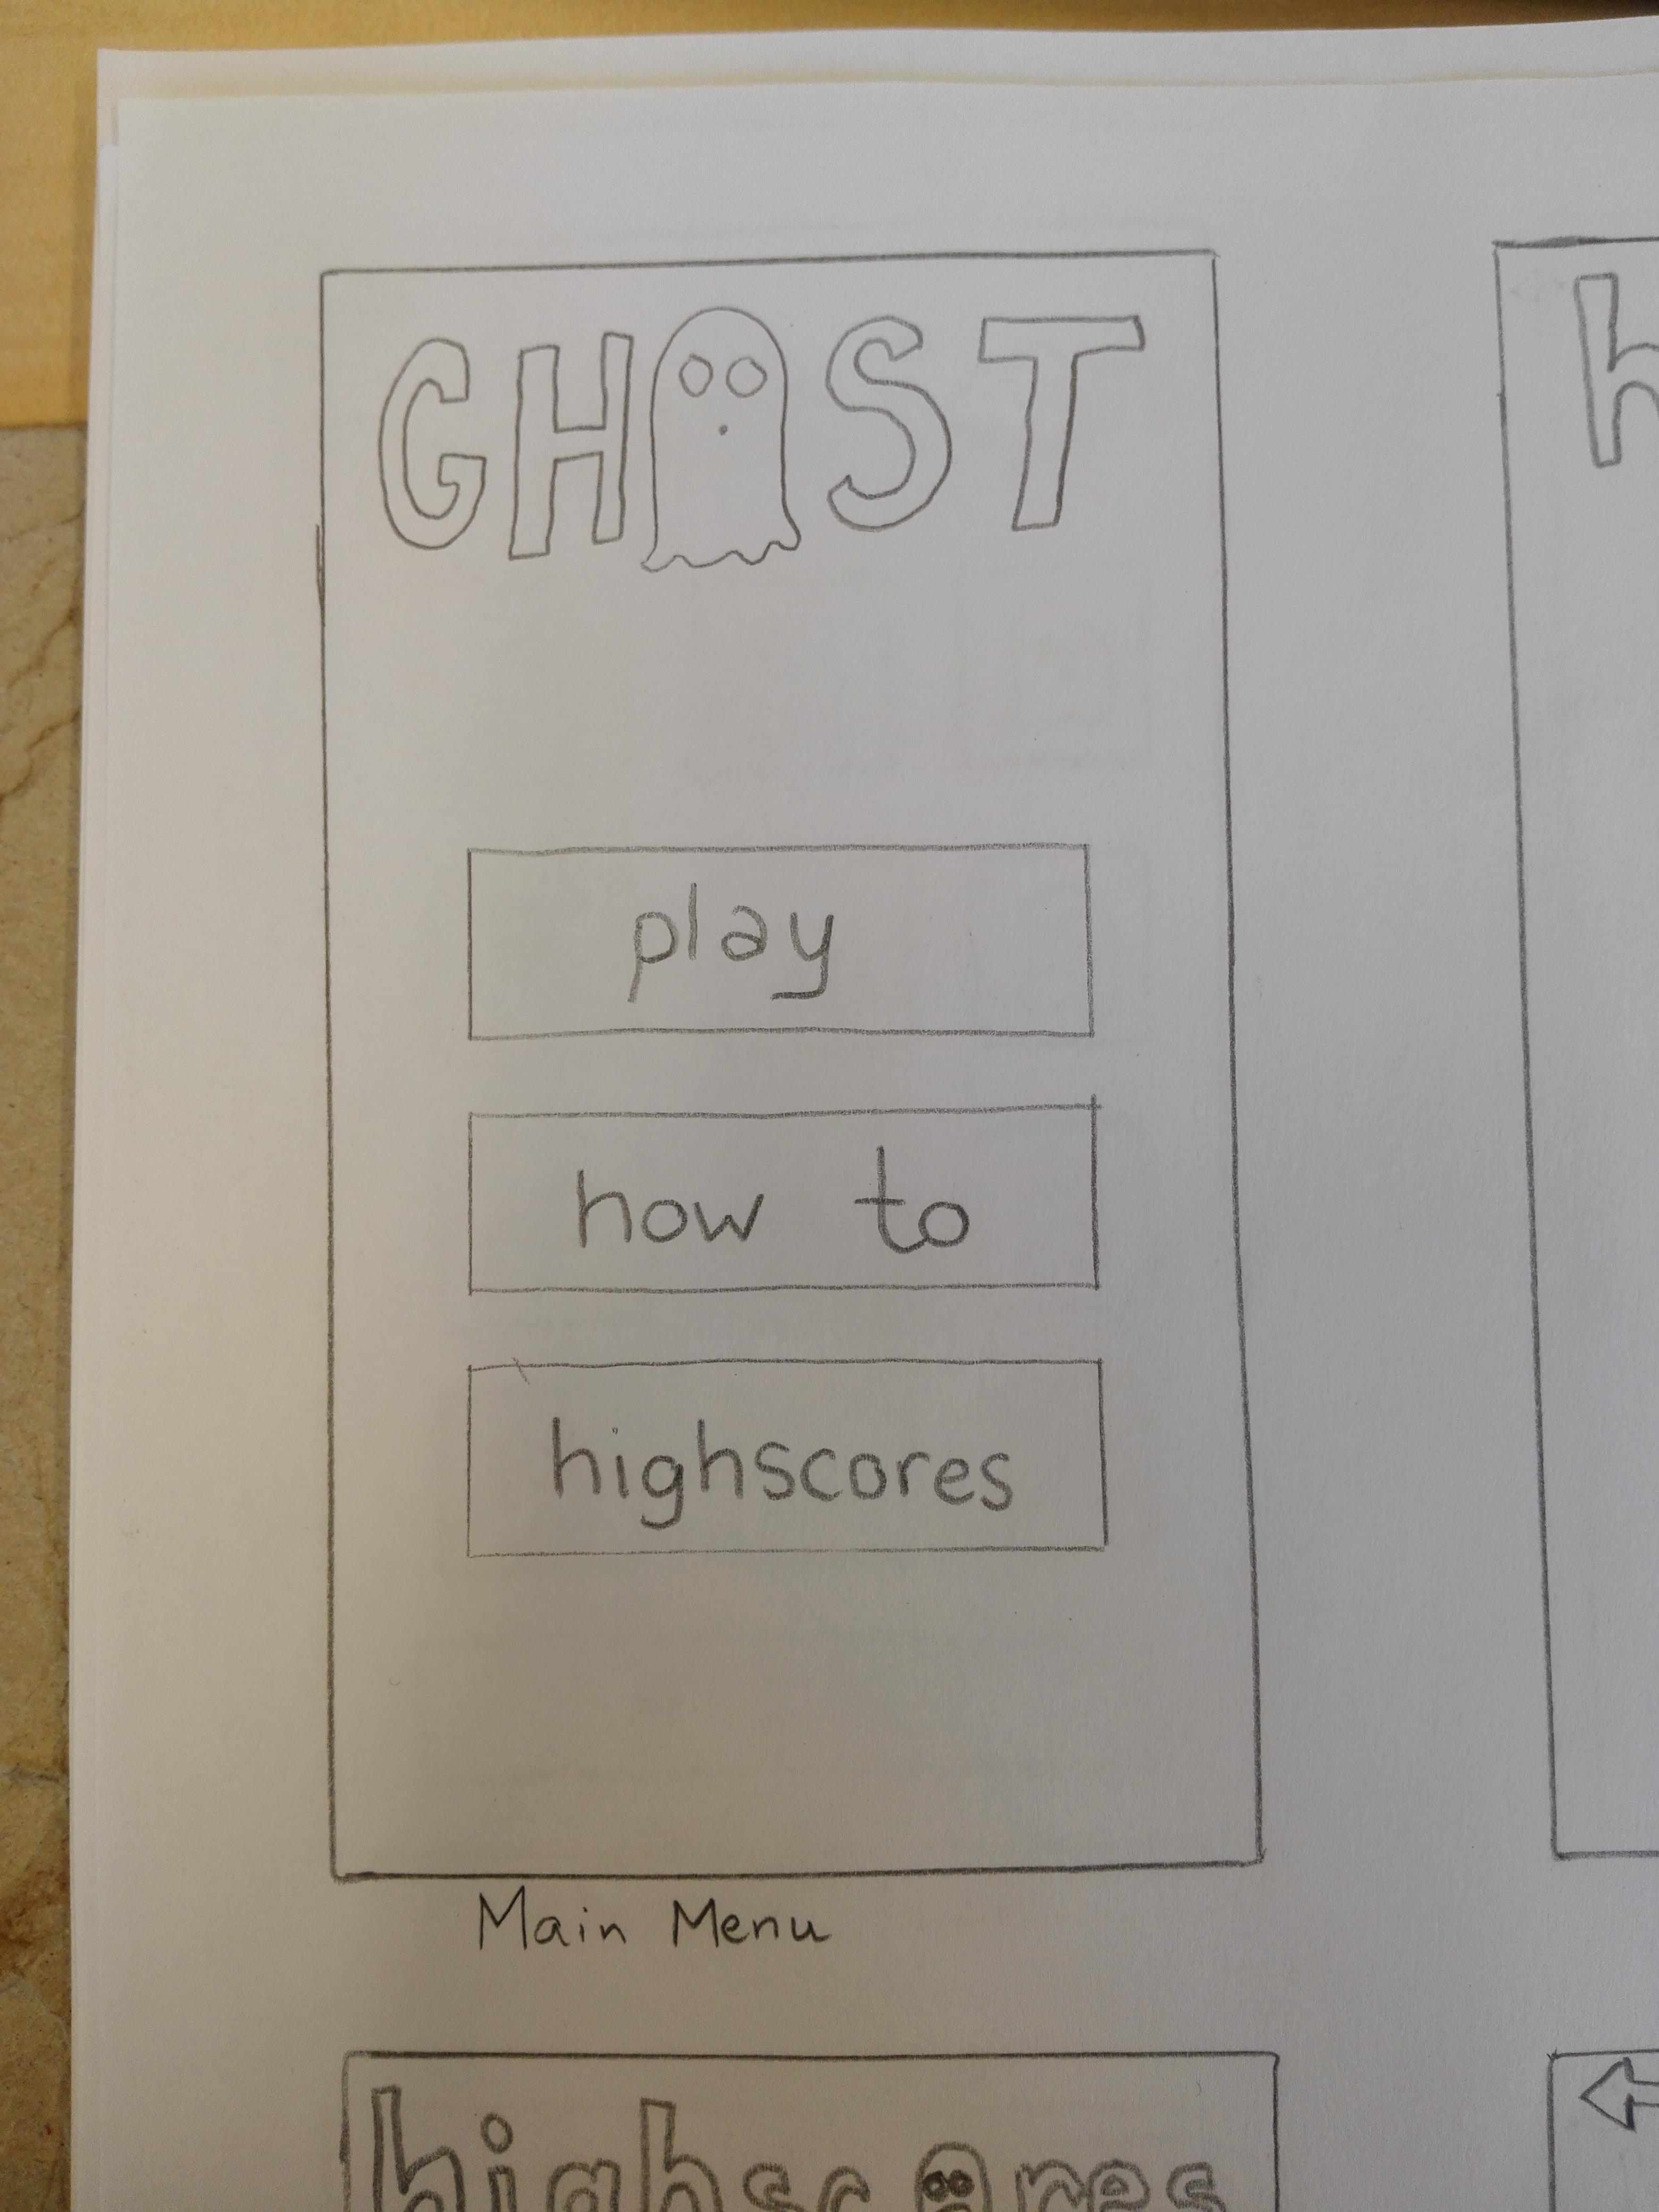 GHOST
h
play
how to
highscores
Main Menu
highscores